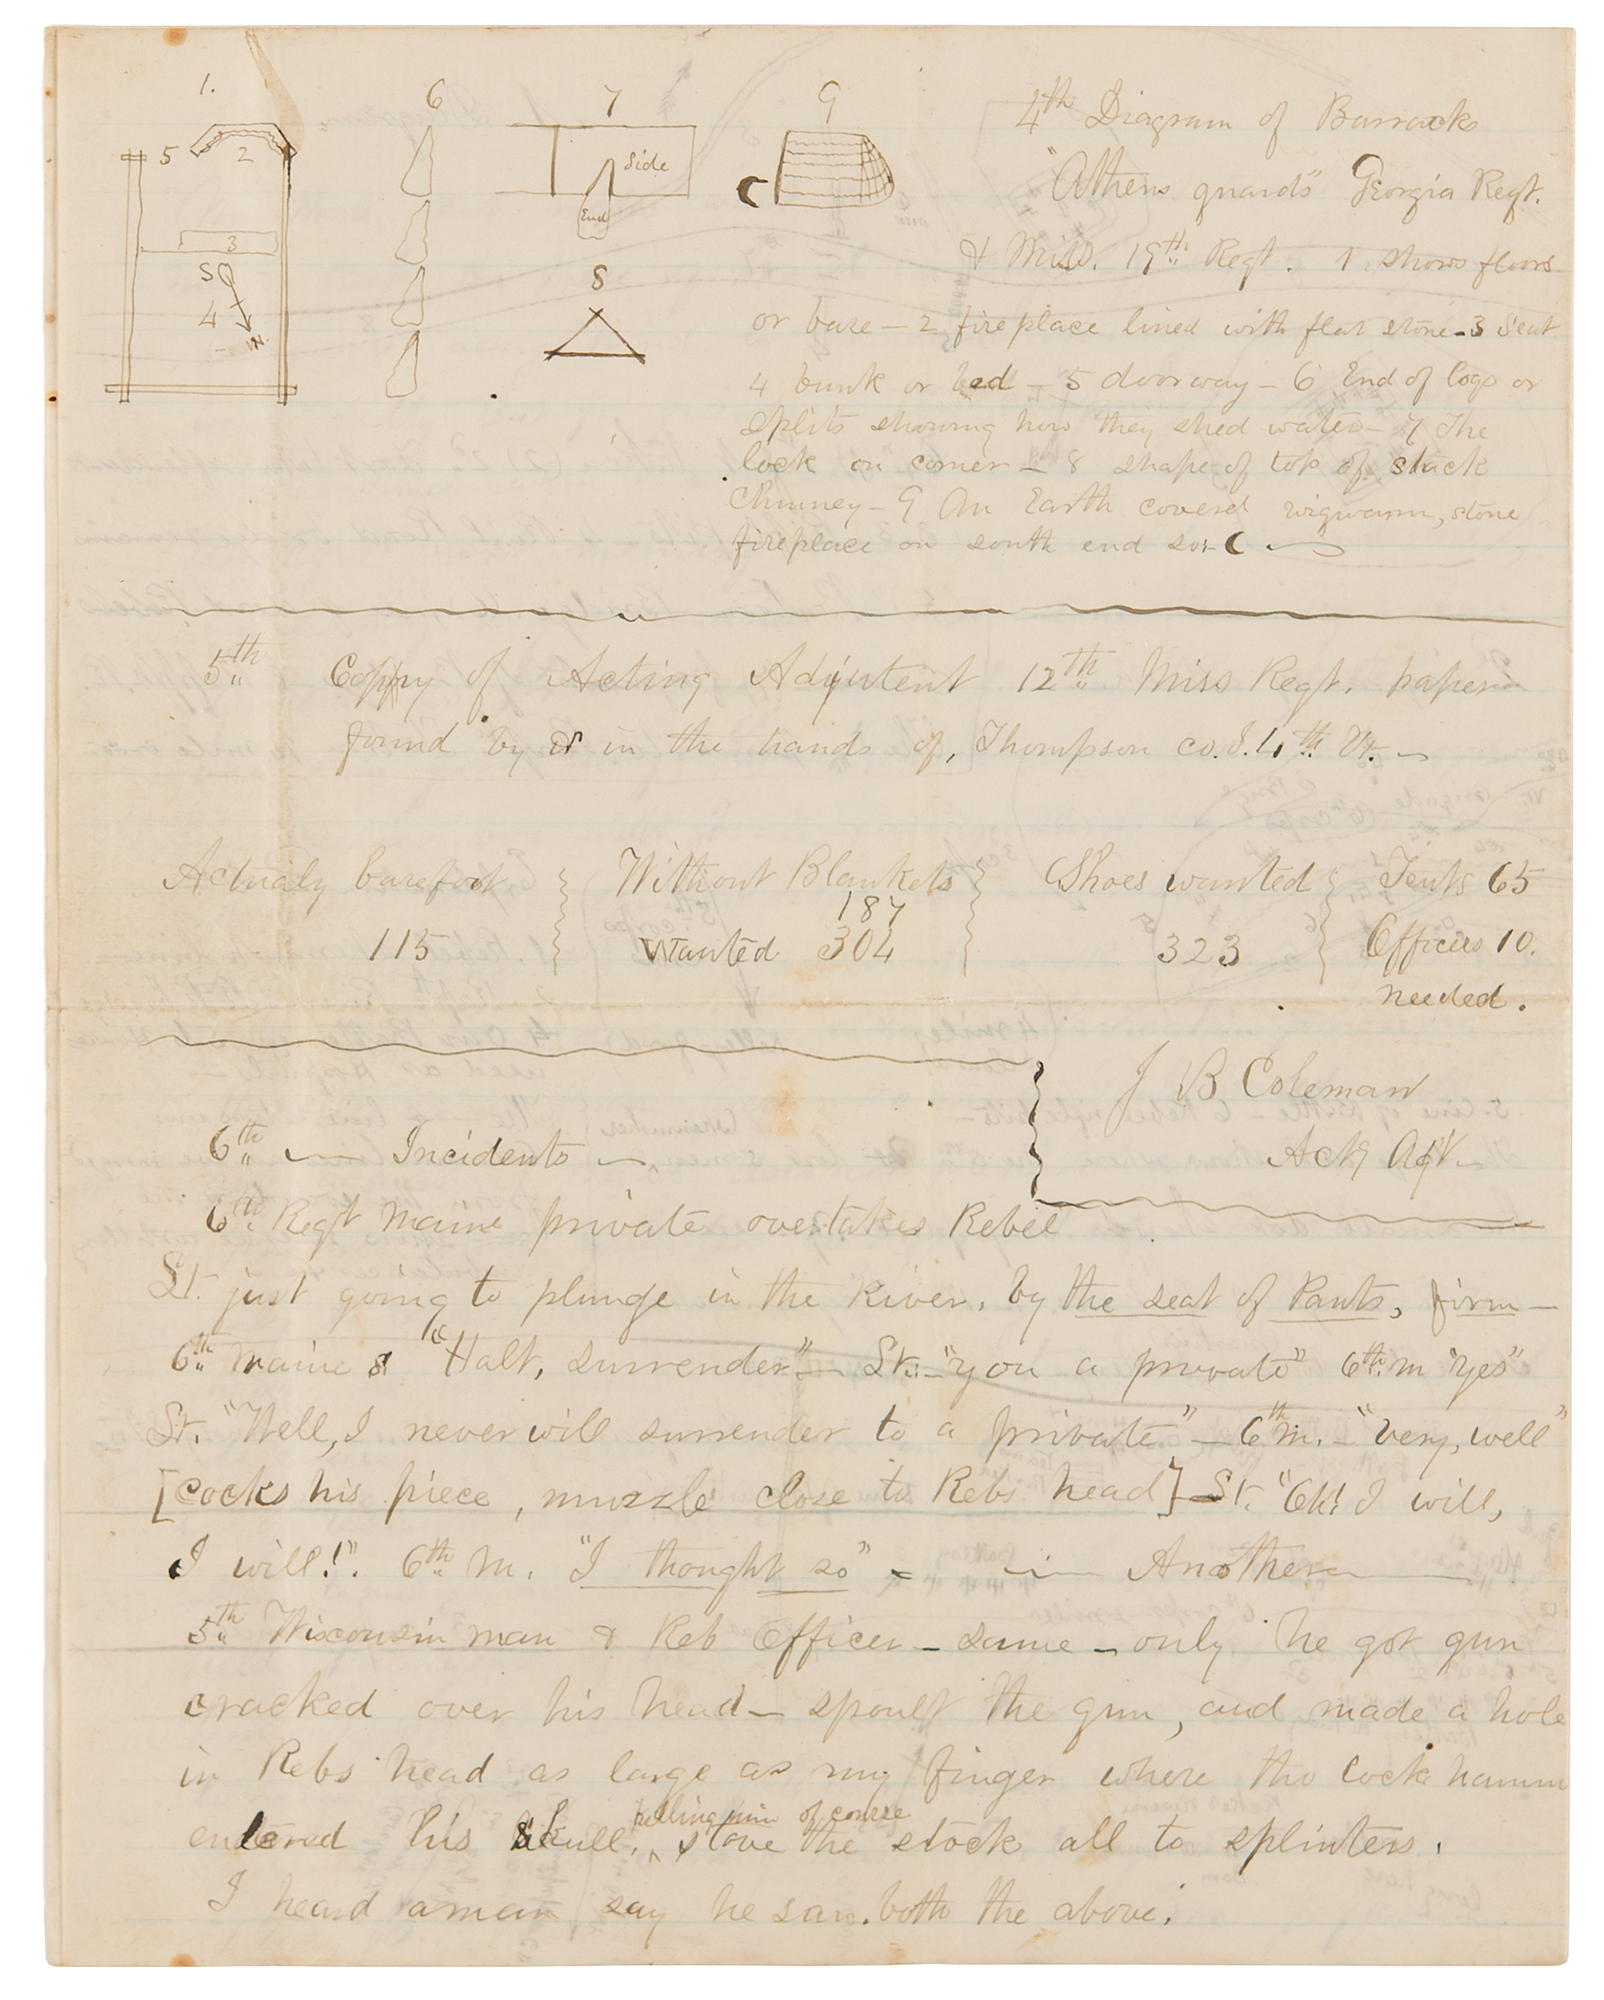 1.
6
7
9
5
2
Side
End
3
S
4
N
8
4th Diagram of Barracks
"Athens guards" Georgia Regt.
& Miss. 19th Regt. 1 shows floors
or base – 2 fireplace lined with flat stone – 3 Seat
4 bunk or bed – 5 doorway – 6 End of logs or
splits showing how they shed water – 7 The
lock on corner – 8 shape of top of stack
Chimney – 9 An Earth coverd wigwam, stone
fireplace on south end so –
5th Coppy of Acting Adjutent 12th Miss Regt. paper
found by & in the hands of, Thompson co. I. 4th Vt. –
Actualy barefoot } Without Blankets } Shoes wanted } Tents 65
187
115 Wanted 304 323 Officers 10.
needed.
J B Coleman
Actg Adjt –
6th — Incidents —
6th Regt Maine private overtakes Rebel
Lt. just going to plunge in the River, by the seat of Pants, firm –
6th Maine "Halt, surrender" – Lt. – "you a private" 6th m "yes"
Lt. "Well, I never will surrender to a private" – 6th m. – "very, well"
[cocks his piece, muzzle close to Rebs head] – Lt. "Oh! I will,
I will!". 6th m. "I thought so" – — Another —
5th Wisconsin man & Reb Officer – same – only he got gun
cracked over his head – spoult the gun, and made a hole
in Rebs head as large as my finger where the lock hamm
entered his skull, killing him of course stove the stock all to splinters.
I heard a man say he saw both the above.